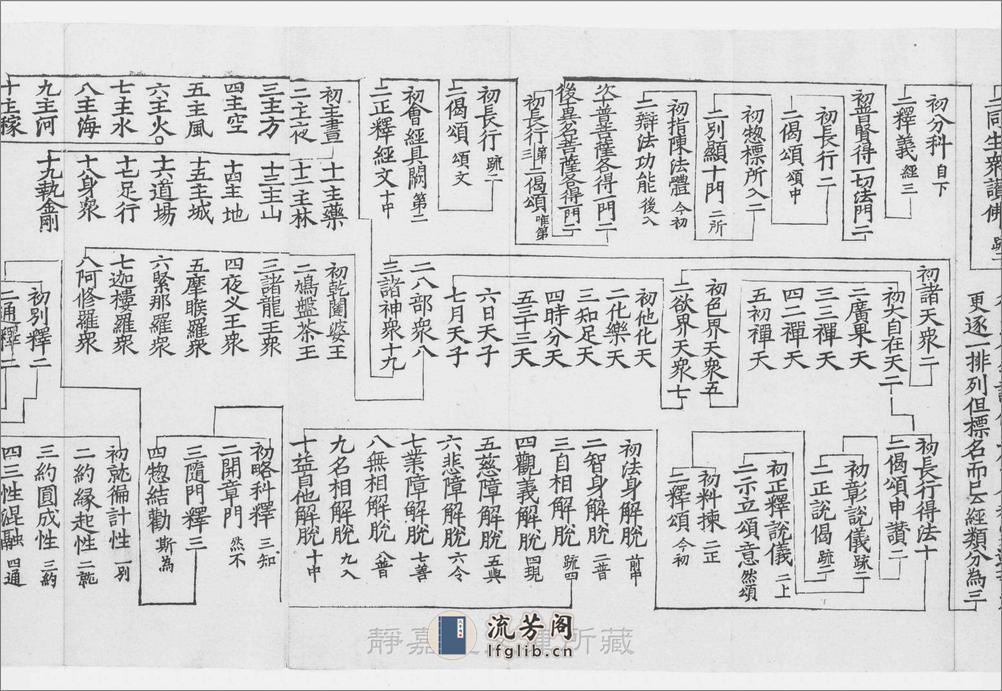 二同生衆讃佛
初分科 自下
二釋義 經三
初普賢得一切法門二
初長行二
二偈頌 頌中
初惣標所入二
二別顯十門 二所
初指陳法體 今初
二辯法功能 後入
次普菩薩各得一門二
後異名菩薩各得一門二
初長行三 第二
二偈頌 唯第
初長行 疏二
二偈頌 頌文
初會經具闕 第二
二正釋經文 十中
初主晝
二主夜
三主方
四主空
五主風
六主火
七主水
八主海
九主河
十主稼
十一主藥
十二主林
十三主山
十四主地
十五主城
十六道場
十七足行
十八身衆
十九執金剛
更逐一排列但標名而已經類分為三
初諸天衆二
初大自在天二
二廣果天
三三禪天
四二禪天
五初禪天
初色界天衆五
二欲界天衆七
初他化天
二化樂天
三知足天
四時分天
五三十三天
六日天子
七月天子
二八部衆八
三諸神衆十九
初乾闥婆王
二鳩盤茶王
三諸龍王衆
四夜叉王衆
五摩睺羅衆
六緊那羅衆
七迦樓羅衆
八阿修羅衆
初別釋二
二通釋二
初長行得法十
二偈頌申讃二
初彰說儀 疏二
二正說偈 疏二
初正釋說儀 二上
二示立頌意 然頌
初料揀 二正
二釋頌 今初
初法身解脫 前中
二智身解脫 二普
三自相解脫 疏四
四觀義解脫 四現
五慈障解脫 五與
六悲障解脫 六令
七業障解脫 七善
八無相解脫 八普
九名相解脫 九入
十益自他解脫 十中
初略科釋 三知
二開章門 然不
三隨門釋三
四惣結勸 斯為
初就徧計性 一列
二約緣起性 二就
三約圓成性 三約
四三性混融 四通
靜嘉 所藏
流芳阁
lfglib.cn